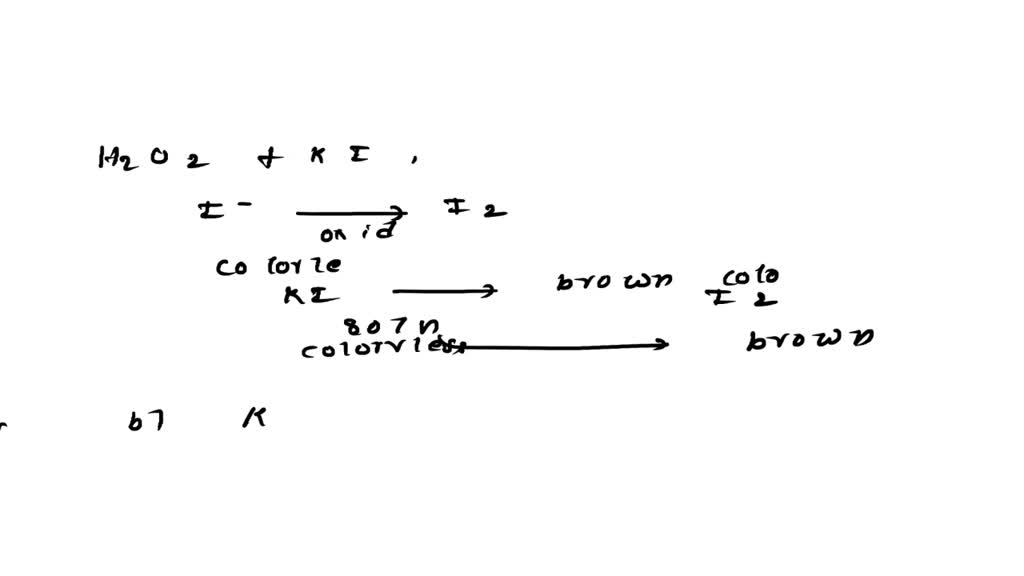 H2O2 + KI,
I⁻ → I2
oxid
colorle
KI → brown colo
I2
soln
colorless → brown
b7 K